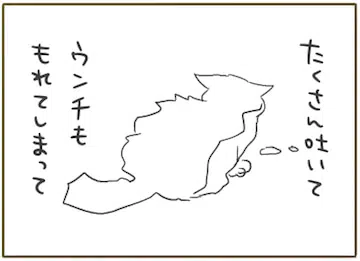 たくさん吐いて
ウンチも
もれてしまって